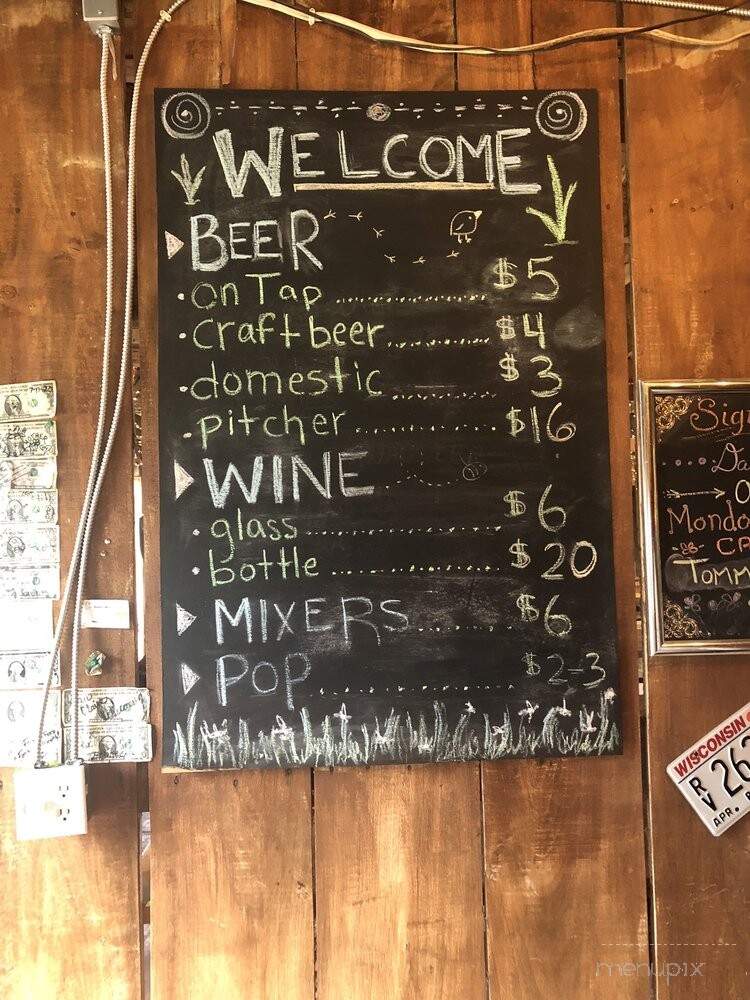 WELCOME
BEER
• on Tap .......................... $5
• craft beer ................... $4
• domestic ................... $3
• pitcher ................... $16
WINE
• glass ............................ $6
• bottle .......................... $20
MIXERS ............ $6
POP .......................... $2-3
Mond
TOMM
WISCONSIN
RV 26
APR.
menupix